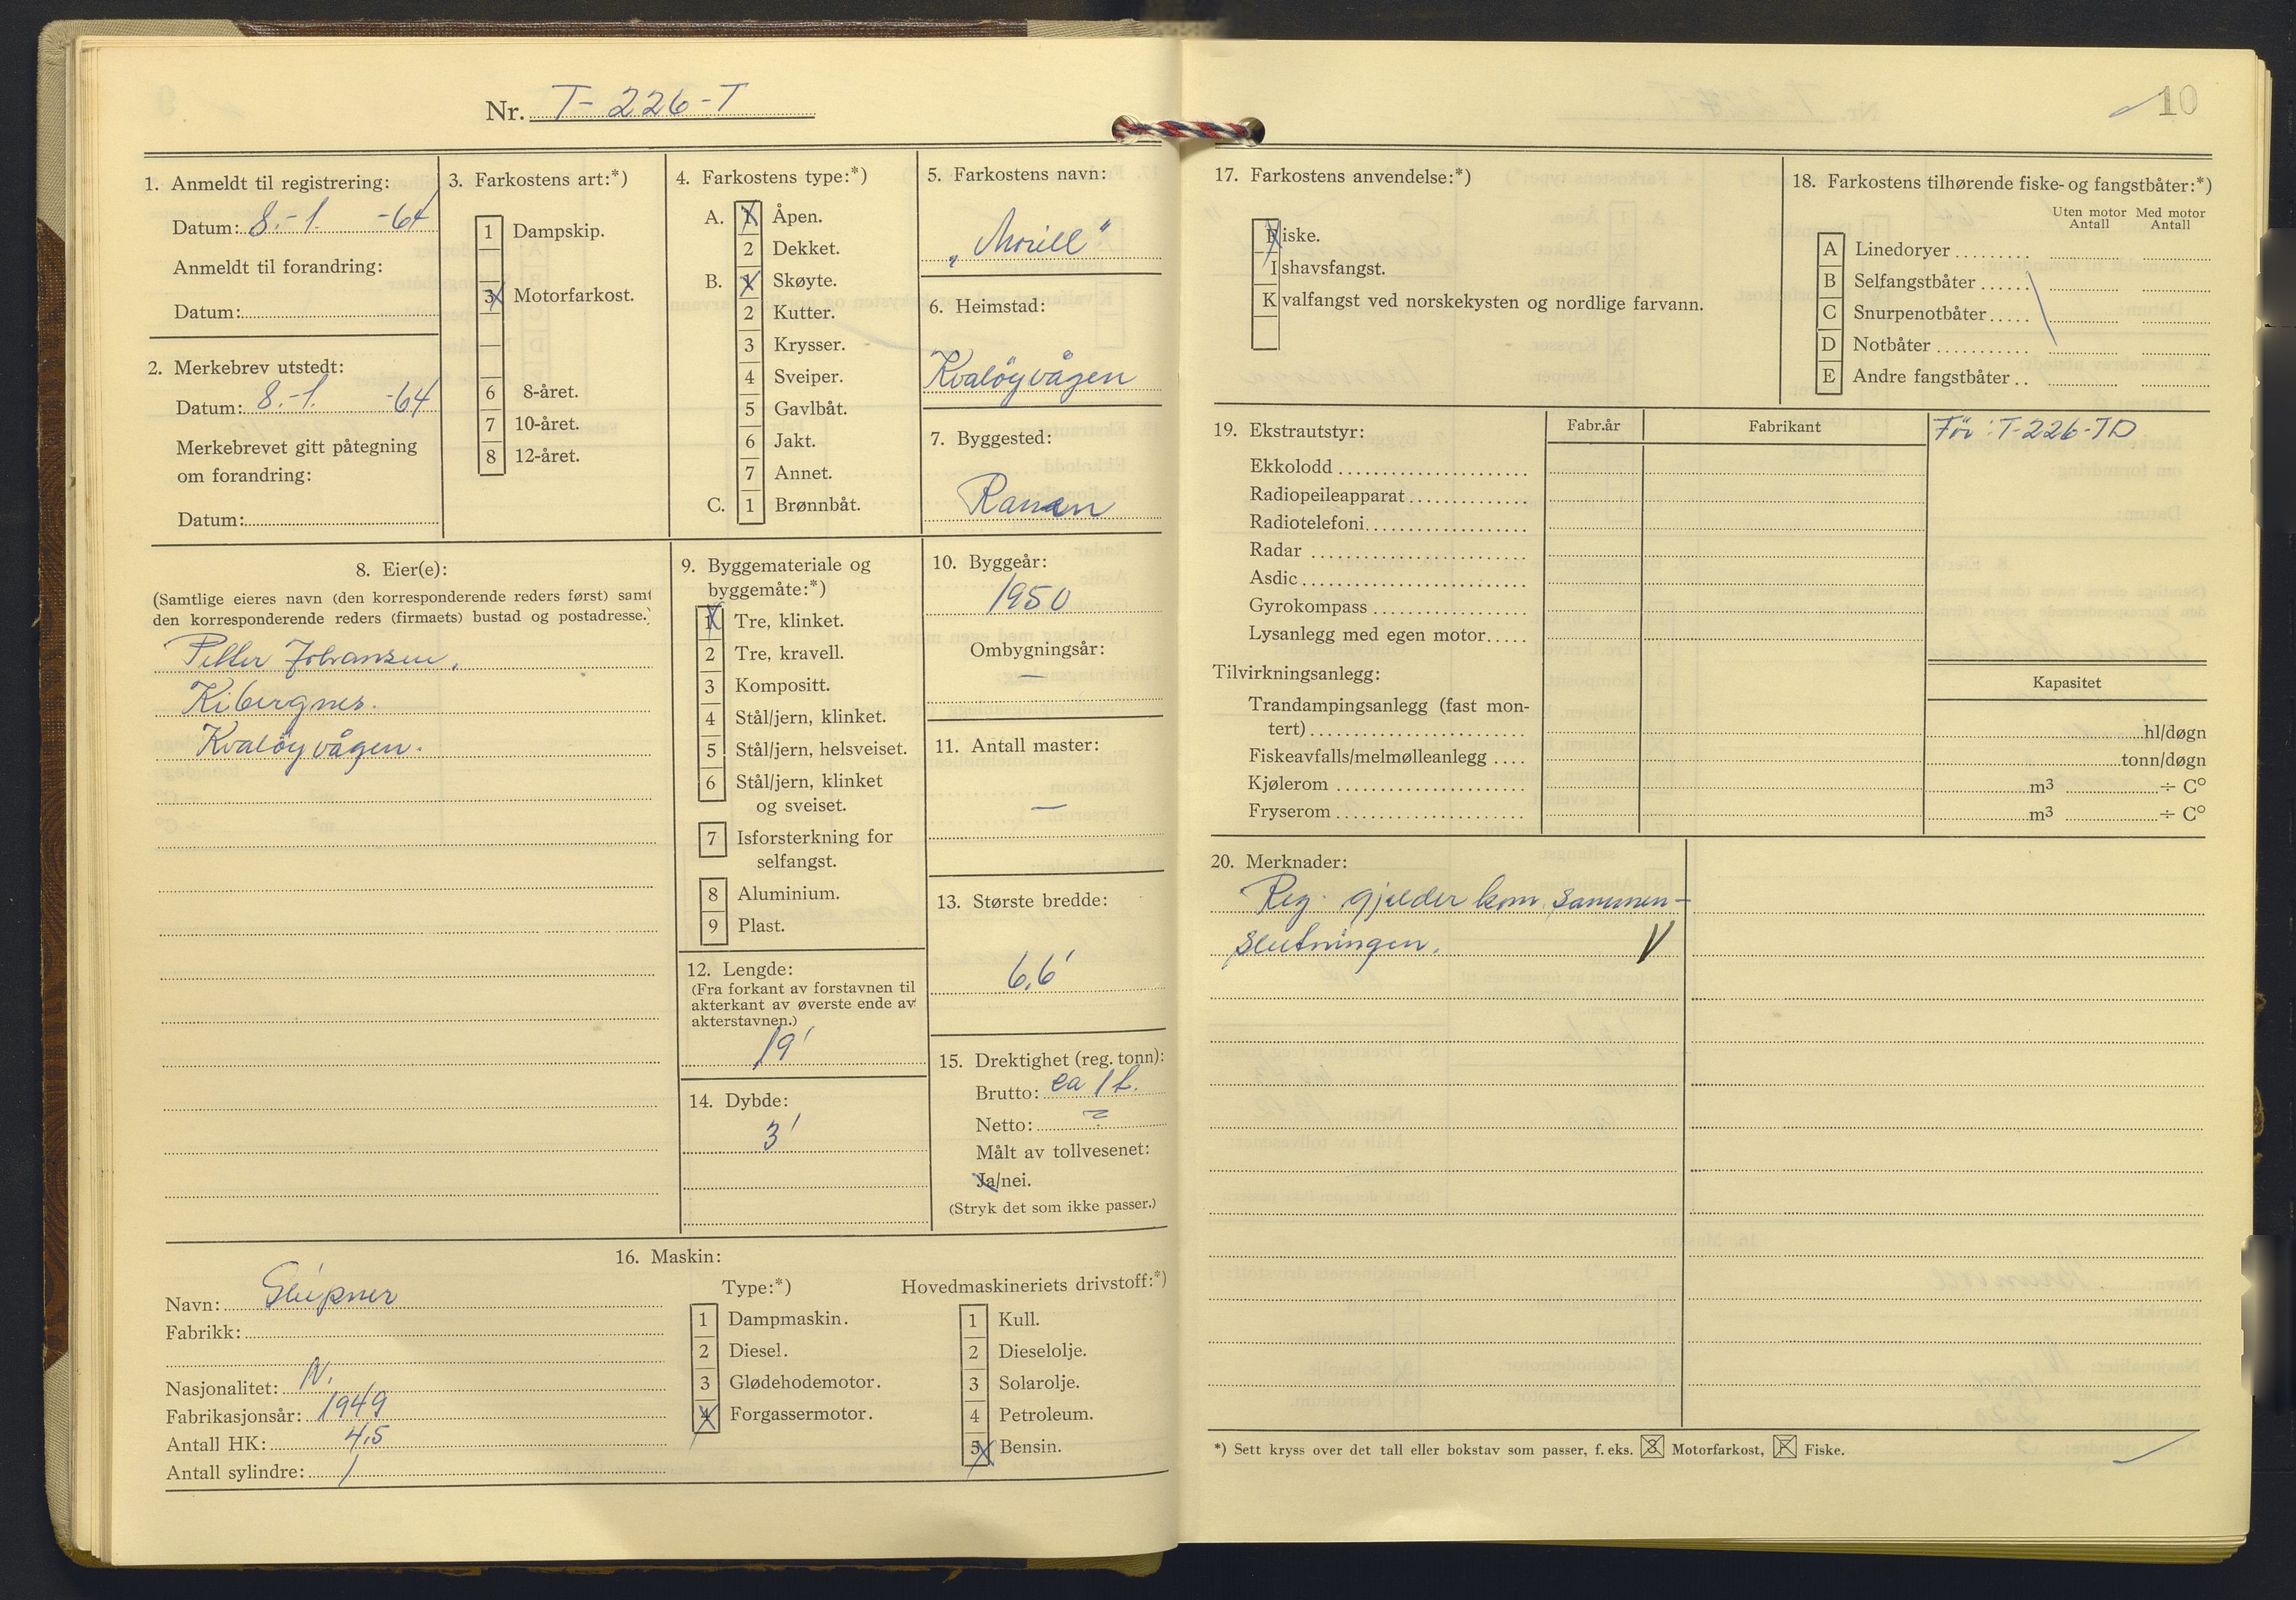 Nr. T-226-T
1. Anmeldt til registrering:
Datum: 8.-1. -64
Anmeldt til forandring:
Datum:
2. Merkebrev utstedt:
Datum: 8.-1. -64
Merkebrevet gitt påtegning
om forandring:
Datum:
3. Farkostens art:*)
1 Dampskip.
3 Motorfarkost.
6 8-året.
7 10-året.
8 12-året.
4. Farkostens type:*)
A. 1 Åpen.
2 Dekket.
B. 1 Skøyte.
2 Kutter.
3 Krysser.
4 Sveiper.
5 Gavlbåt.
6 Jakt.
7 Annet.
C. 1 Brønnbåt.
5. Farkostens navn:
6. Heimstad:
Kvaløyvågen
7. Byggested:
Ranen
8. Eier(e):
(Samtlige eieres navn (den korresponderende reders først) samt
den korresponderende reders (firmaets) bustad og postadresse.)
Petter Johansen,
Kibergnes.
Kvaløyvågen.
9. Byggemateriale og
byggemåte:*)
1 Tre, klinket.
2 Tre, kravell.
3 Kompositt.
4 Stål/jern, klinket.
5 Stål/jern, helsveiset.
6 Stål/jern, klinket
og sveiset.
7 Isforsterkning for
selfangst.
8 Aluminium.
9 Plast.
10. Byggeår:
1950
Ombygningsår:
—
11. Antall master:
—
12. Lengde:
(Fra forkant av forstavnen til
akterkant av øverste ende av
akterstavnen.)
19'
13. Største bredde:
6,6'
14. Dybde:
3'
15. Drektighet (reg. tonn):
Brutto: ca 1 t.
Netto: ?
Målt av tollvesenet:
Ja/nei.
(Stryk det som ikke passer.)
16. Maskin:
Navn: Sleipner
Fabrikk:
Nasjonalitet: N.
Fabrikasjonsår: 1949
Antall HK: 4,5
Antall sylindre: 1
Type:*)
1 Dampmaskin.
2 Diesel.
3 Glødehodemotor.
4 Forgassermotor.
Hovedmaskineriets drivstoff:*)
1 Kull.
2 Dieselolje.
3 Solarolje.
4 Petroleum.
5 Bensin.
10
17. Farkostens anvendelse:*)
Fiske.
Ishavsfangst.
Kvalfangst ved norskekysten og nordlige farvann.
18. Farkostens tilhørende fiske- og fangstbåter:*)
Uten motor Antall
Med motor Antall
A Linedoryer
B Selfangstbåter
C Snurpenotbåter
D Notbåter
E Andre fangstbåter
19. Ekstrautstyr:
Fabr.år
Fabrikant
Før: T-226-TD
Ekkolodd
Radiopeileapparat
Radiotelefoni
Radar
Asdic
Gyrokompass
Lysanlegg med egen motor
Tilvirkningsanlegg:
Kapasitet
Trandampingsanlegg (fast mon-
tert) hl/døgn
Fiskeavfalls/melmølleanlegg tonn/døgn
Kjølerom m³ ÷ C°
Fryserom m³ ÷ C°
20. Merknader:
Reg. gjelder kom. sammen-
slutningen. V
*) Sett kryss over det tall eller bokstav som passer, f. eks. 3 Motorfarkost, F Fiske.